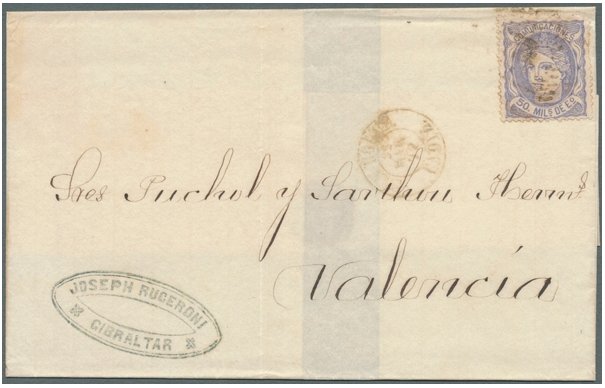 COMUNICACIONES
50. MILS DE EO
Sres Puchol y Sarthou Hermns
Valencia
JOSEPH RUGERONI
GIBRALTAR